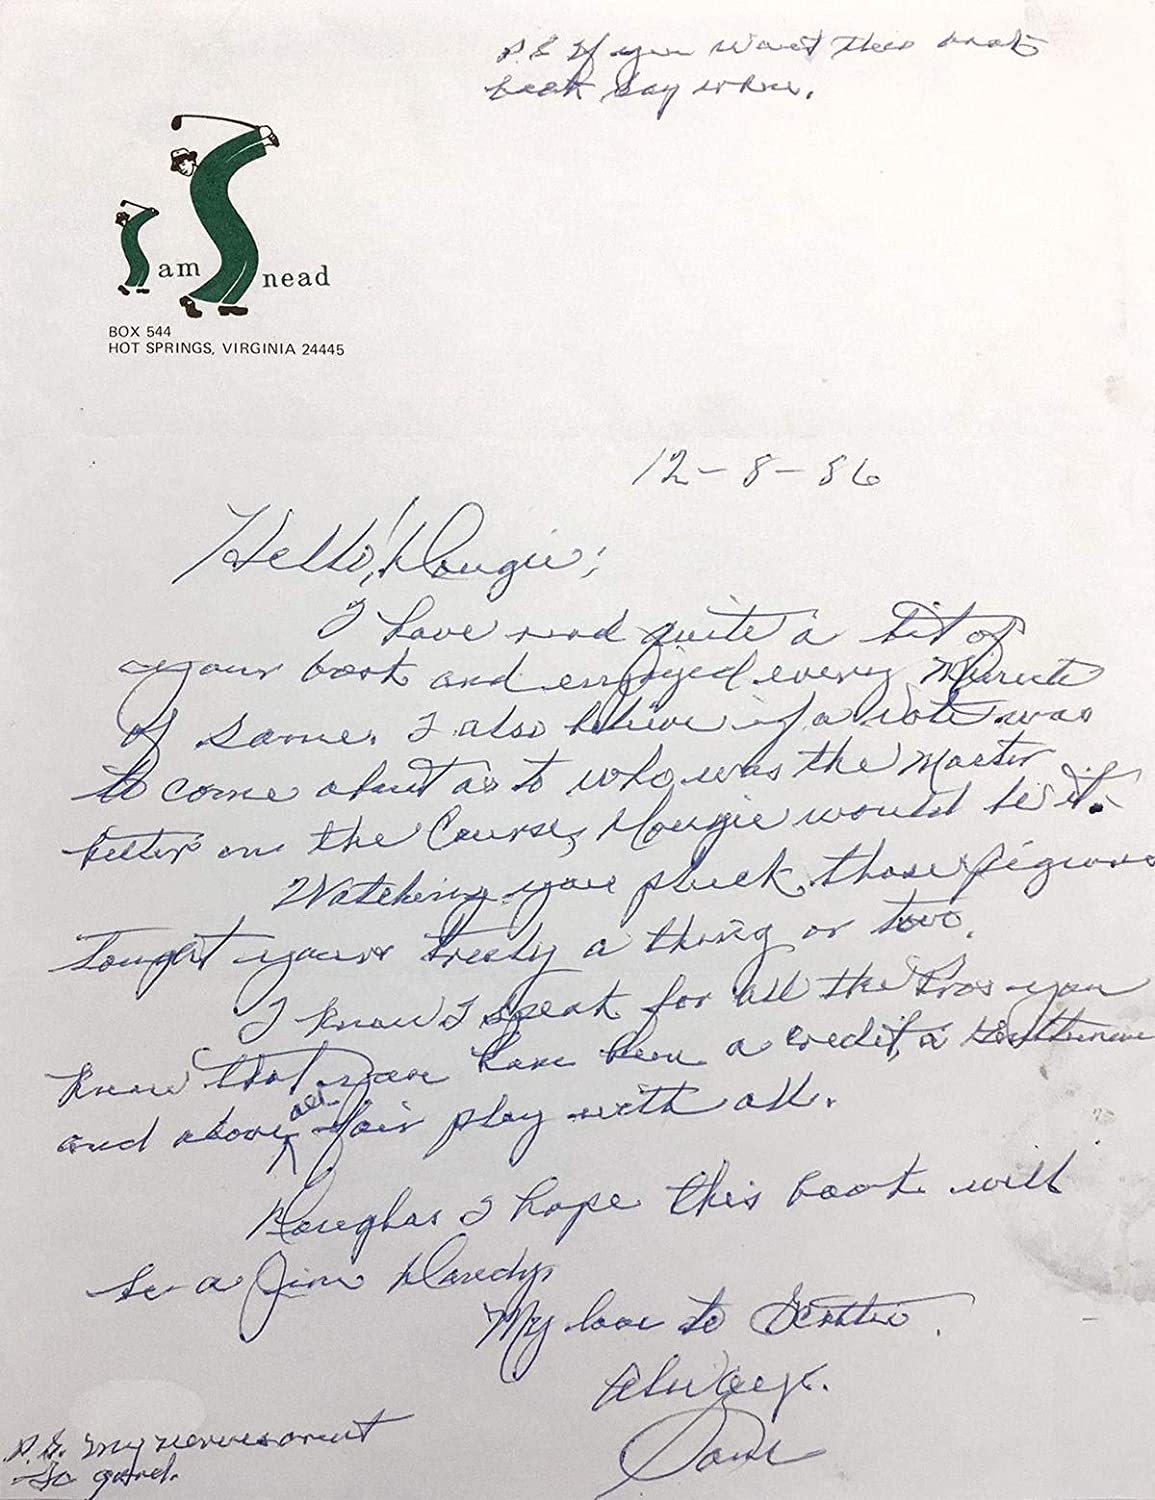 P.S. If you want this book
back say when.
Sam Snead
BOX 544
HOT SPRINGS, VIRGINIA 24445
12-8-86
Hello! Dougie;
I have read quite a bit of
your book and enjoyed every Minute
of same. I also believe if a vote was
to come about as to who was the Master
better on the Course, Dougie would be it.
Watching you pluck those pigeons
taught yours truly a thing or two.
I know I speak for all the Pros you
know that you have been a credit, a Gentleman
and above all fair play with all.
Douglas I hope this book will
be a Jim Dandy.
My love to Scottie.
Always.
Sam
P.S. My nerves arent
so good.